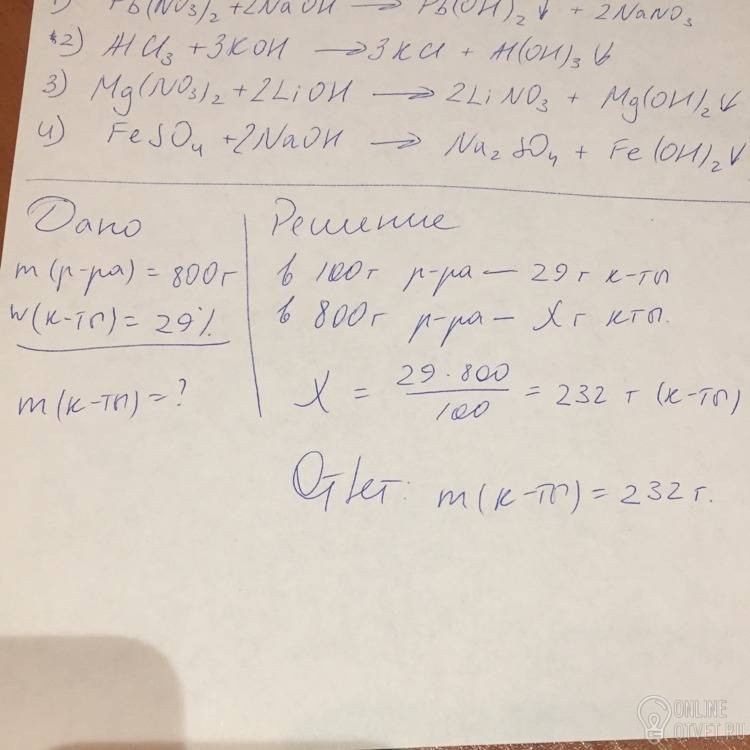 1) Pb(NO₃)₂ + 2NaOH → Pb(OH)₂↓ + 2NaNO₃
2) AlCl₃ + 3KOH → 3KCl + Al(OH)₃↓
3) Mg(NO₃)₂ + 2LiOH → 2LiNO₃ + Mg(OH)₂↓
4) FeSO₄ + 2NaOH → Na₂SO₄ + Fe(OH)₂↓
Дано
m(р-ра) = 800г
w(к-ты) = 29%
m(к-ты) = ?
Решение
в 100г р-ра — 29 г к-ты
в 800г р-ра — X г кты.
X = 29·800/100 = 232 г (к-ты)
Ответ: m(к-ты) = 232 г.
ONLINE
OTVET.RU